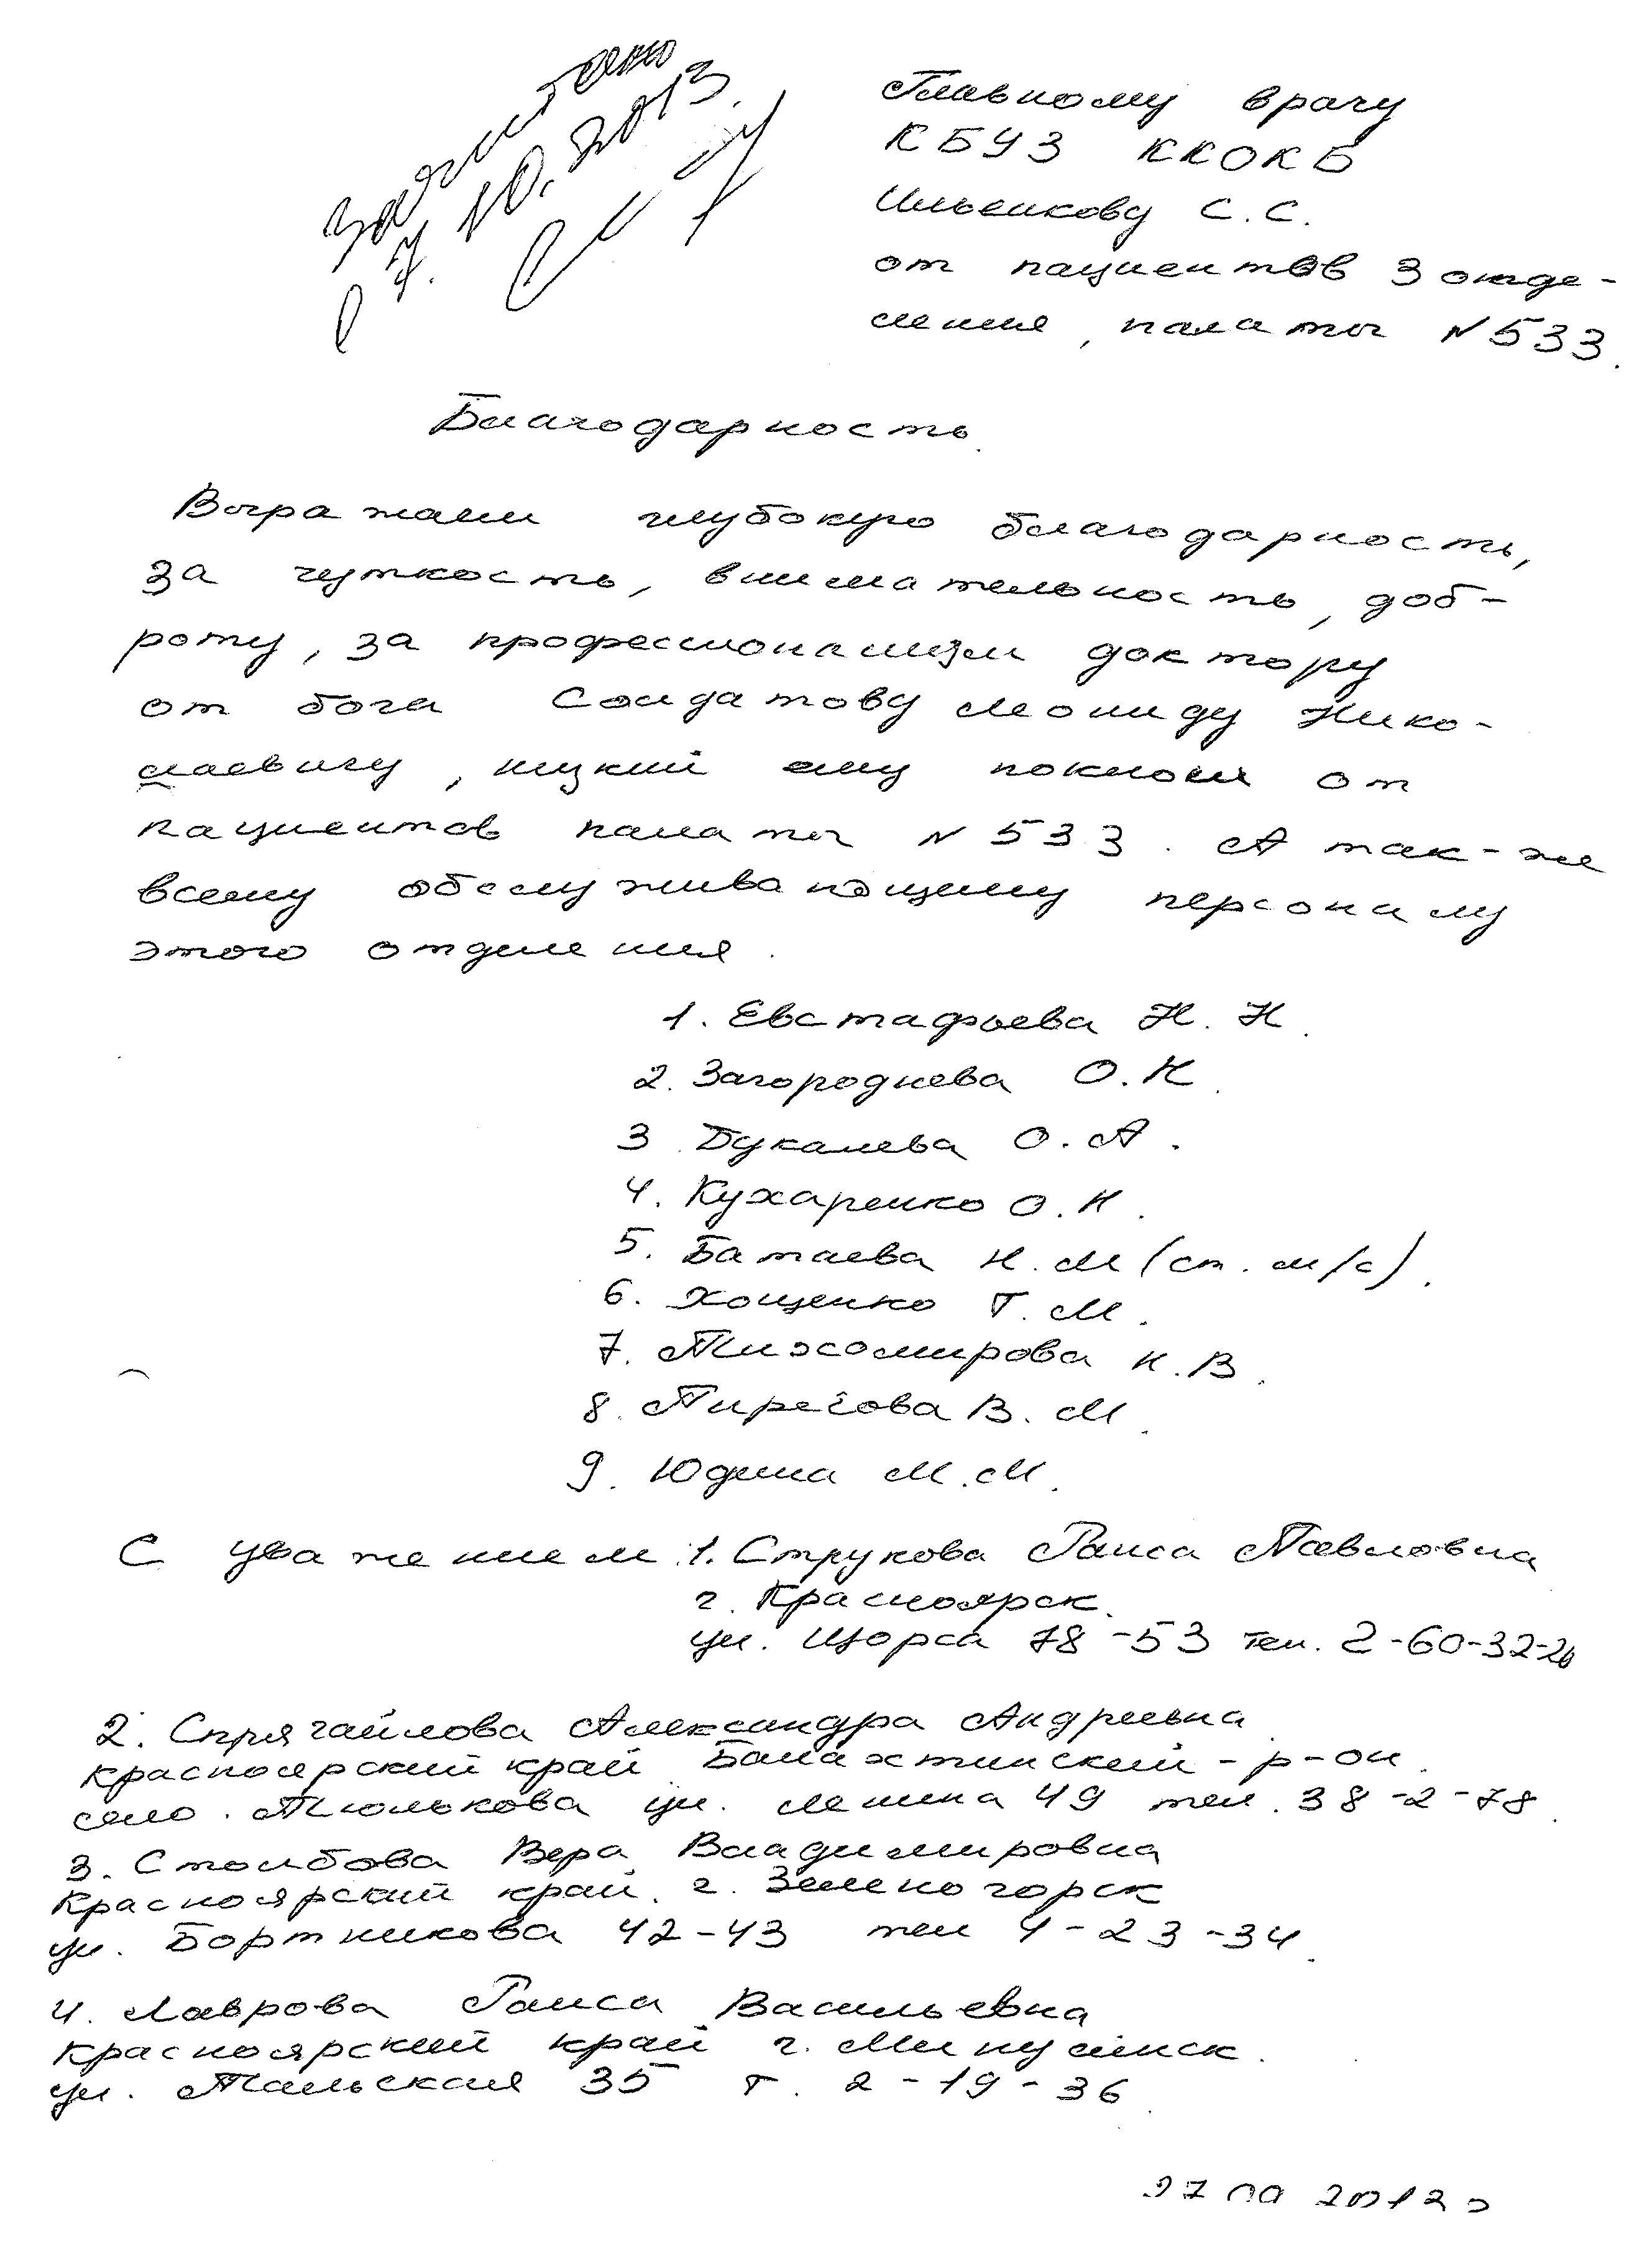 7.10.2013.
Главному врачу
КБУЗ ККОКБ
Ильенкову С.С.
от пациентов 3 отде-
ления, палаты N 533.
Благодарность.
Выражаем глубокую благодарность,
за чуткость, внимательность, доб-
роту, за профессионализм доктору
от бога Солдатову Леониду Нико-
лаевичу, низкий ему поклон от
пациентов палаты N 533. А так-же
всему обслуживающему персоналу
этого отделения.
1. Евстафьева Н. Н.
2. Загороднева О. Н.
3 Дукалева О. А.
4. Кухаренко О. Н.
5. Батаева Н. М (ст. м/с).
6. Хощенко Т. М.
7. Тихомирова Н. В.
8. Пирогова В. М.
9. Юдина М. М.
С уважением: 1. Струкова Раиса Павловна
г. Красноярск.
ул. Щорса 78-53 тел. 2-60-32-20
2. Спрягайлова Александра Андреевна
Красноярский край Балахтинский-р-он.
село. Тюлькова ул. Ленина 49 тел. 38-2-78.
3. Столбова Вера Владимировна
Красноярский край. г. Зеленогорск
ул. Бортникова 42-43 тел 4-23-34.
4. Лаврова Раиса Васильевна
Красноярский край г. Минусинск.
ул. Тальская 35 т. 2-19-36.